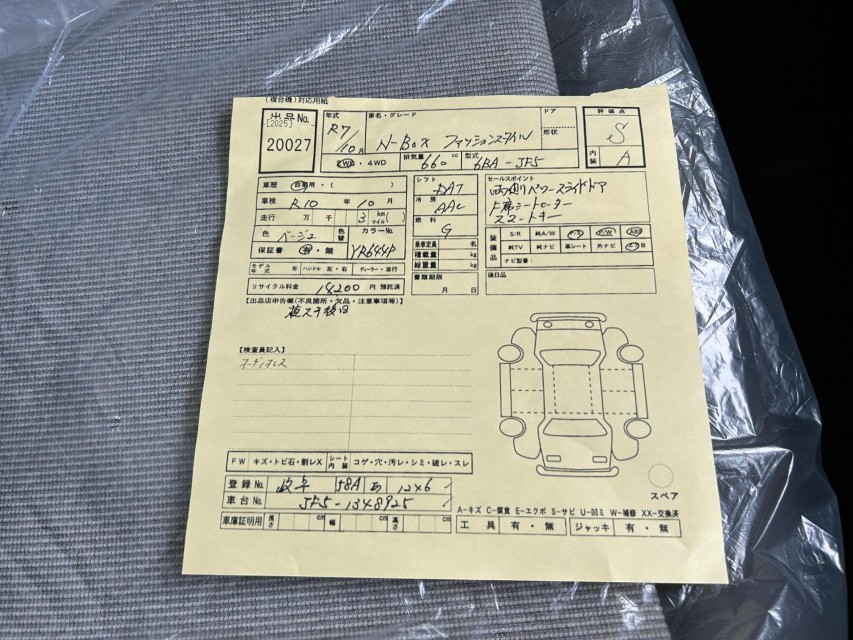 (複合機)対応用紙
出品No.
[2025]
20027
年式
R7/10月
車名・グレード
N-Box ファッションスタイル
ドア
形状
評価点
S
内装 A
2WD・4WD
排気量 660cc
型式 6BA-JF5
車歴 自家用・( )
車検 R10年10月
走行 万 千 3 km(マイル)( )
色 ベージュ
色替
カラーNo. YR644P
保証書 有・無
モデル年式 年 ハンドル 左・右 ディーラー・並行
リサイクル料金 14200 円 預託済
シフト DAT
冷房 AAC
燃料 G
乗車定員 名
積載量 kg
総重量 kg
書類期限
月 日
セールスポイント
両側パワースライドドア
F席シートヒーター
スマートキー
装備品
S/R 純A/W P/S P/W ABS
純TV 純ナビ 革シート 外ナビ エアB
ナビ型番:
後日品
【出品店申告欄(不良箇所・欠品・注意事項等)】
複スチ後日
【検査員記入】
オーディオレス
FW キズ・トビ石・割レX
シート内装 コゲ・穴・汚レ・シミ・破レ・スレ
登録No. 岐阜 58A あ 1246
車台No. JF5-1348925
車庫証明用 長さ cm 幅 cm 高さ cm
スペア
A-キズ C-腐食 E-エクボ S-サビ U-凹ミ W-補修 XX-交換済
工具 有・無 ジャッキ 有・無